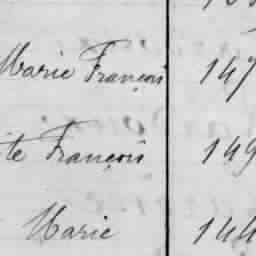 Marie François 147
te François 149
Marie 144